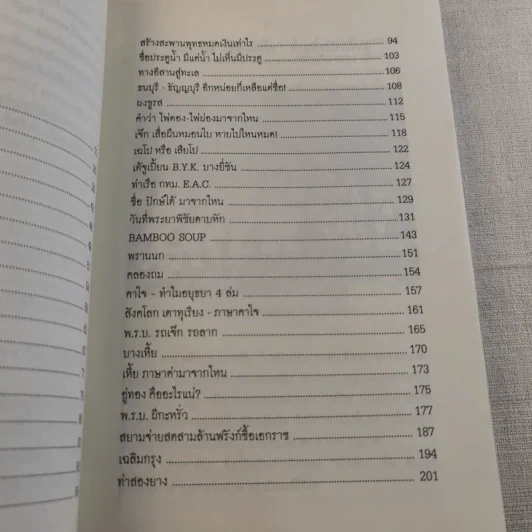 สร้างสะพานพุทธหมดเงินเท่าไร 94
ชื่อประตูน้ำ มีแต่น้ำ ไม่เห็นมีประตู 103
ทางอีสานสู่ทะเล 106
ธนบุรี - ธัญญบุรี อีกหน่อยก็เหลือแต่ชื่อ! 108
ผงชูรส 112
คำว่า ไพ่ตอง-ไพ่ผ่องมาจากไหน 115
เจ๊ก เสื่อผืนหมอนใบ หายไปไหนหมด! 118
เฉโป หรือ เสี่ยโป 122
เตั้ซูเปี้ยน B.Y.K. บางยี่ขัน 124
ท่าเรือ กทม. E.A.C. 127
ชื่อ ปักษ์ใต้ มาจากไหน 129
วันที่พระยาพิชัยดาบหัก 131
BAMBOO SOUP 143
พรานนก 151
คลองถม 154
คาใจ - ทำไมอยุธยา 4 ล่ม 157
สังคโลก เตาทุเรียง - ภาษาคาใจ 161
พ.ร.บ. รถเจ๊ก รถลาก 165
บางเหี้ย 170
เหี้ย ภาษาด่ามาจากไหน 173
อู่ทอง คืออะไรแน่? 175
พ.ร.บ. ฝีกะหรั่ว 177
สยามจ่ายสดสามล้านฟรังก์ซื้อเอกราช 187
เฉลิมกรุง 194
ท่าสองยาง 201